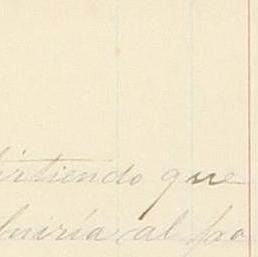 irtiendo que
luiría al